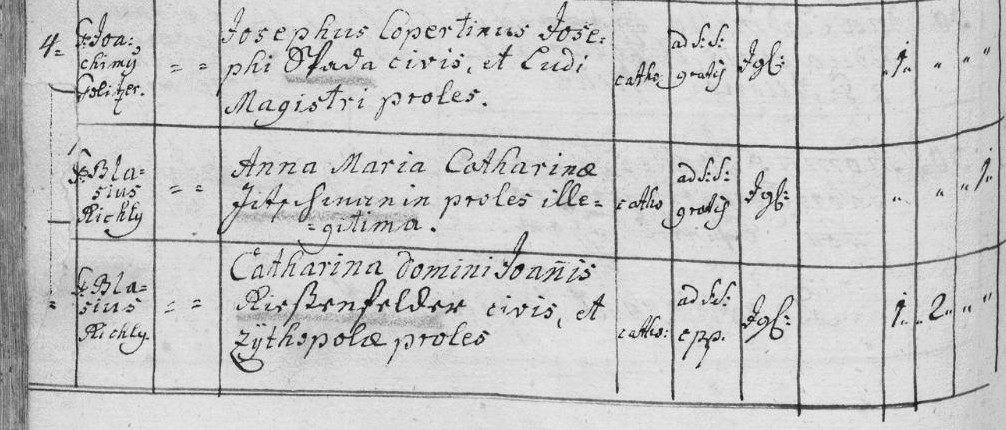 4. P: Joa:
chimy
Politzer.
Josephus Copertinus Jose:
phi Spada civis, et Ludi
Magistri proles.
catho:
ad S:S:
gratij
Igl:
1.
P: Bla=
sius
Richly
Anna Maria Catharinæ
proles ille=
=gitima.
catho
ad S:S:
gratij
Igl:
1.
P: Bla=
sius
Richly.
Catharina domini Joannis
Riessenfelder civis, et
zÿthopolæ proles
catho:
ad S:S:
cpp.
Igl:
1. 2.